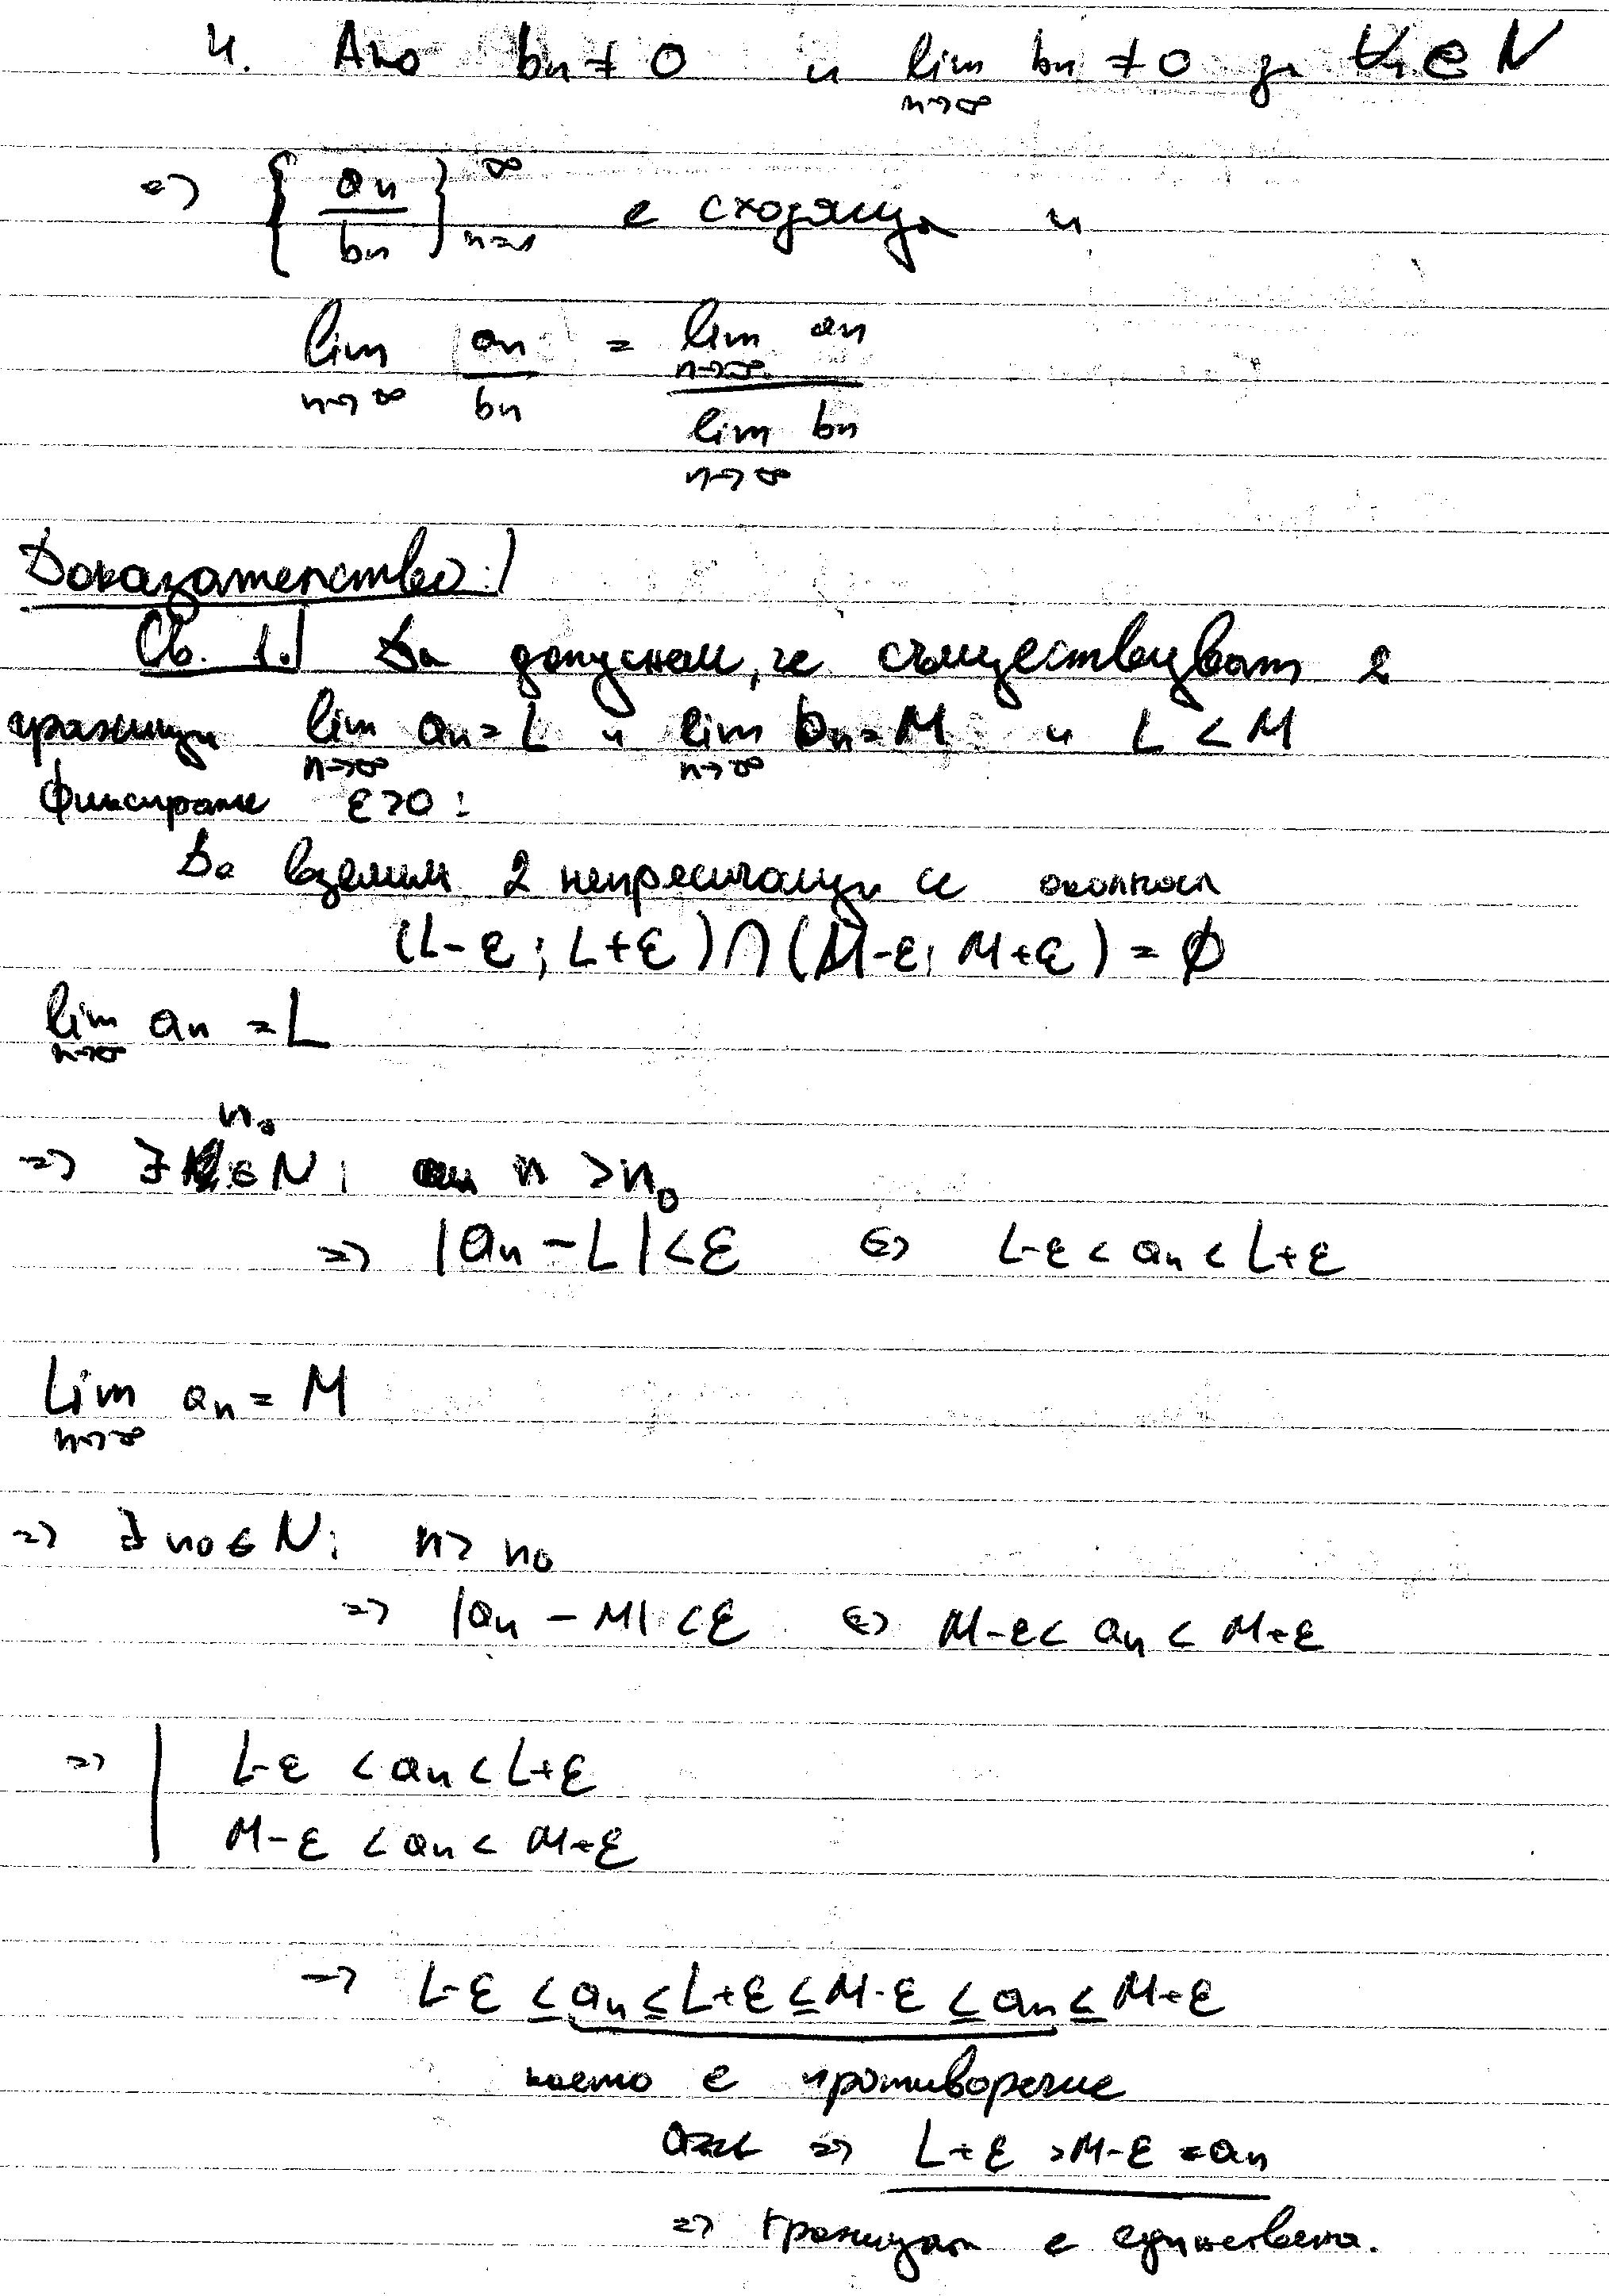 4. Ако bn ≠ 0 и lim bn ≠ 0 за ∀n ∈ N
n→∞
=> { an / bn }∞n=1 е сходяща и
lim an / bn = lim an / lim bn
n→∞ n→∞ n→∞
Доказателство:
Св. 1. Да допуснем, че съществуват 2
граници lim an = L и lim bn = M и L < M
n→∞ n→∞
Фиксираме ε>0:
Да вземем 2 непресичащи се околност
(L-ε; L+ε) ∩ (M-ε; M+ε) = ∅
lim an = L
n→∞
n0
=> ∃ ∈ N: n > n0
=> |an - L| < ε <=> L-ε < an < L+ε
Lim an = M
n→∞
=> ∃ n0 ∈ N: n > n0
=> |an - M| < ε <=> M-ε < an < M+ε
=> | L-ε < an < L+ε
M-ε < an < M+ε
=> L-ε ≤ an ≤ L+ε ≤ M-ε ≤ an ≤ M+ε
което е противоречие
=> L+ε > M-ε = an
=> границата е единствена.